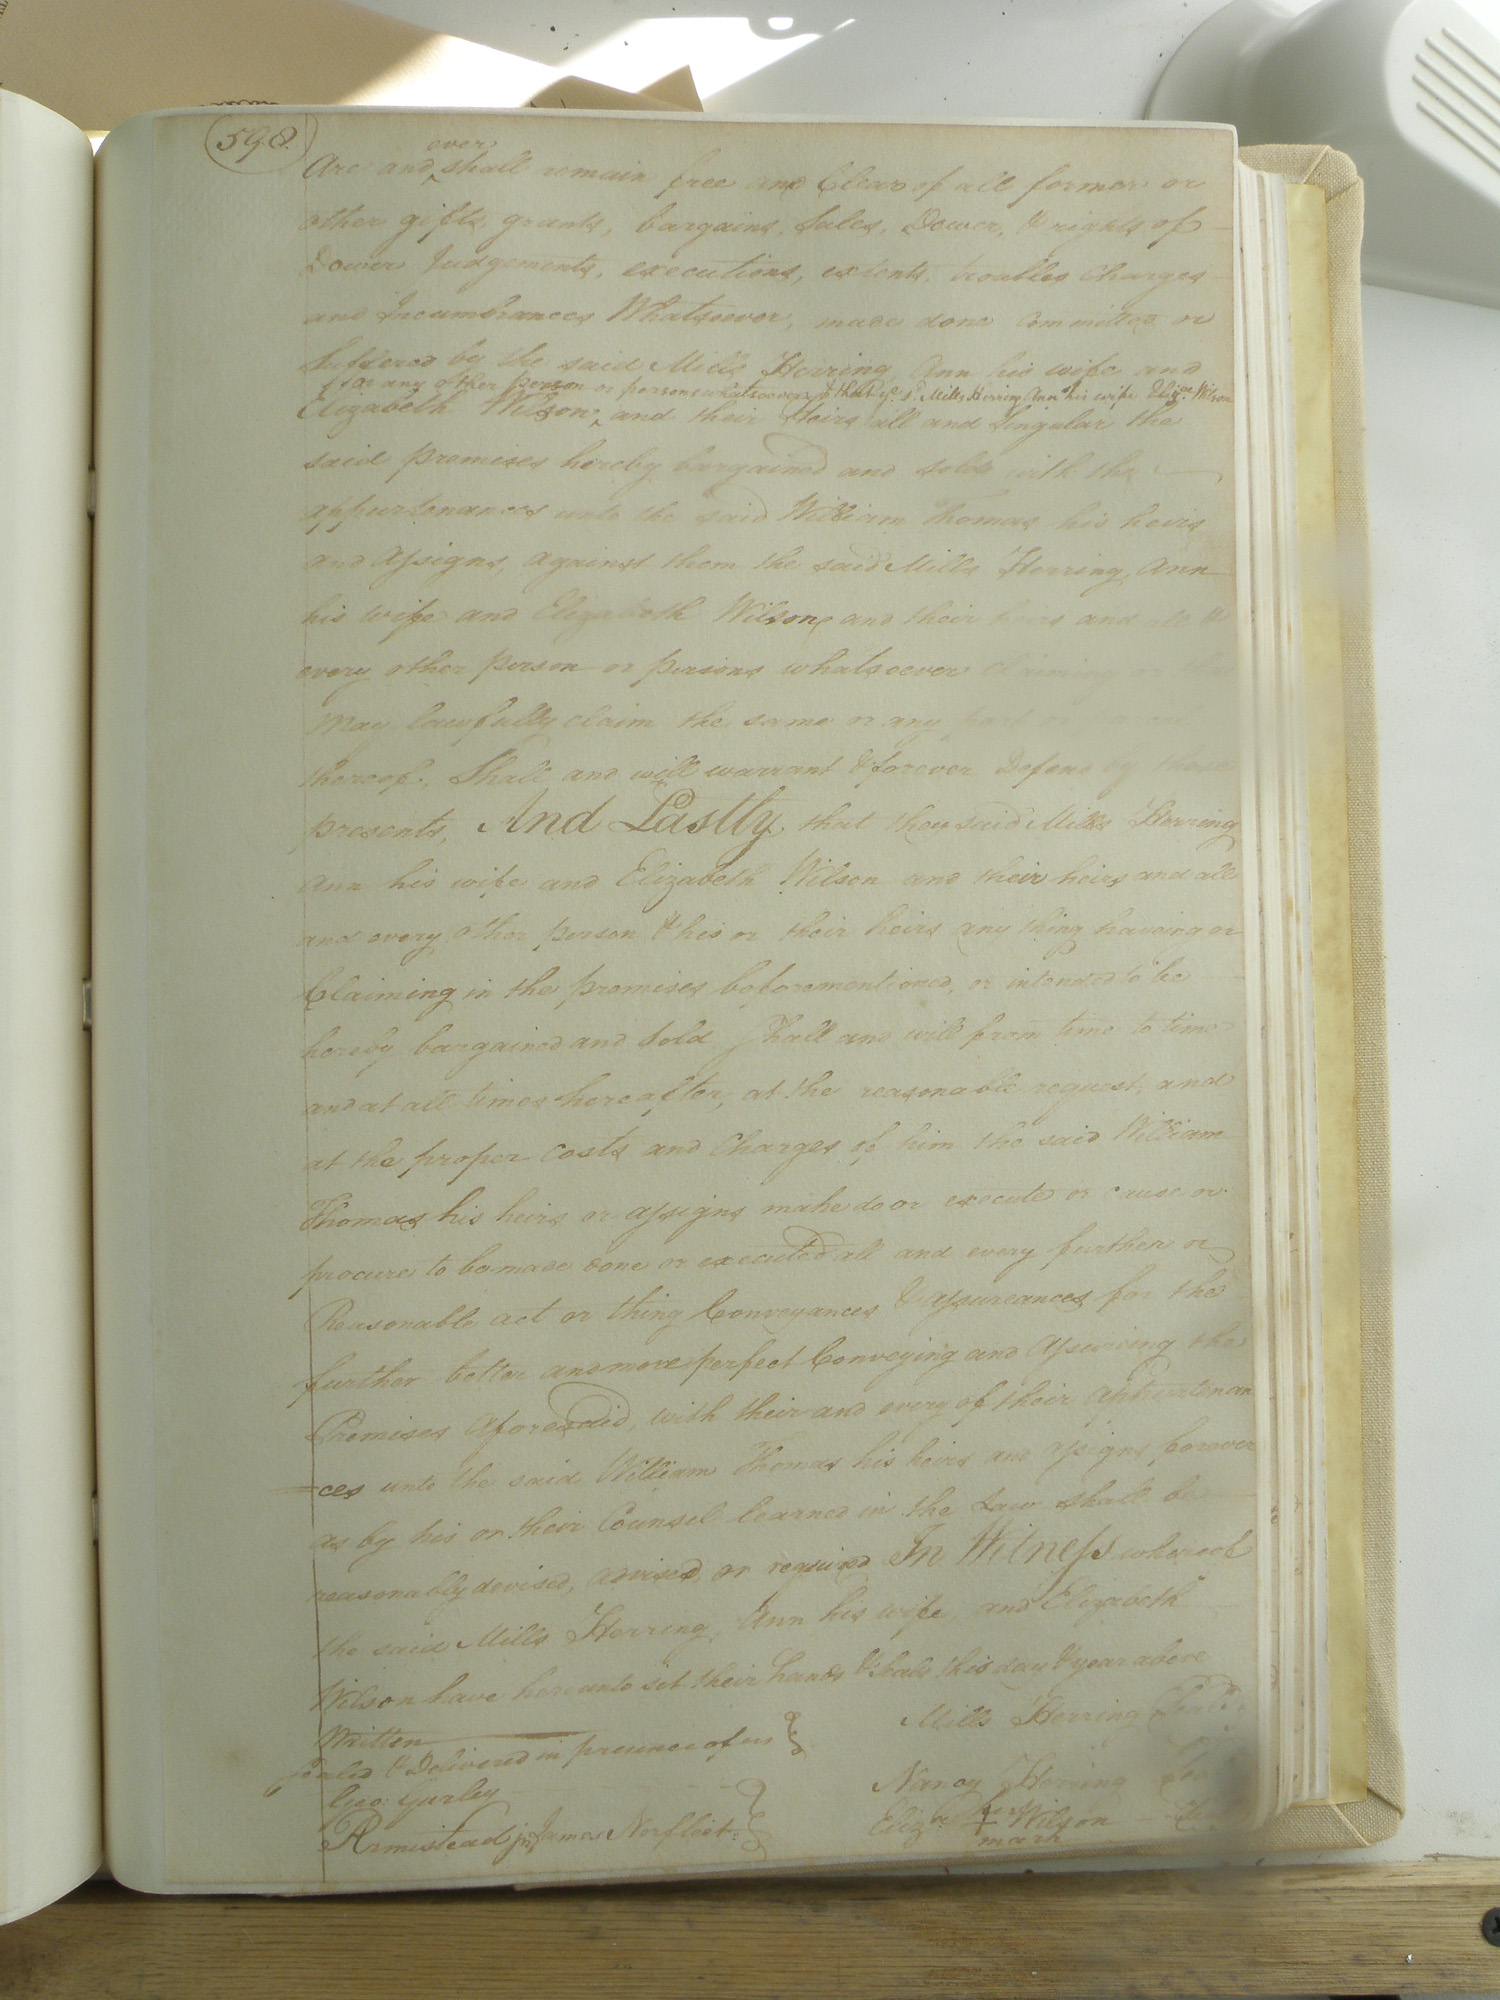 598.
ever
Are and shall remain free and Clear of all former or
other gifts, grants, bargains, Sales, Dower, & rights of
Dower Judgements, executions, extents, troubles Charges
and Incumbrances Whatsoever, made done Committed or
Suffered by the said Mills Herring Ann his wife and
or any other person or persons whatsoever & that ye sd Mills Herring Ann his wife Elizae Wilson
Elizabeth Wilson ^ and their Heirs all and Singular the
said premeses hereby bargained and sold with the
appurtenances unto the said William Thomas his heirs
and assigns, against them the said Mills Herring, Ann
his wife and Elizabeth Wilson, and their heirs and all &
every other person or persons whatsoever Claiming or
May lawfully claim the same or any part
thereof. Shall and will warrant & forever Defend by these
presents, And Lastly, that they said Mills Herring
Ann his wife and Elizabeth Wilson and their heirs and all
and every other person & his or their heirs any thing having or
Claiming in the premises beforementioned, or intended to be
hereby bargained and Sold Shall and will from time to time
and at all times hereafter, at the reasonable request, and
at the proper Costs and Charges of him the said William
Thomas his heirs or assigns make do or execute or cause or
procure to be made done or executed all and every further or
Reasonable act or thing Conveyances & assureances for the
further better and more perfect Conveying and assureing the
Premises aforesaid, with their and every of their appurtenan
=ces unto the said William Thomas his heirs and assigns forever
as by his or their Counsel learned in the Law shall be
reasonably devised, advised, or required In Witness whereof
the said Mills Herring, Ann his wife, and Elizabeth
Wilson have hereunto set their hands & seals this day & year above
Written Mills Herring Seal
Sealed & Delivered in presence of us
Geo: Gurley Nancy Herring Seal
Armistead jr, James Norfleet Eliza her + Wilson
mark